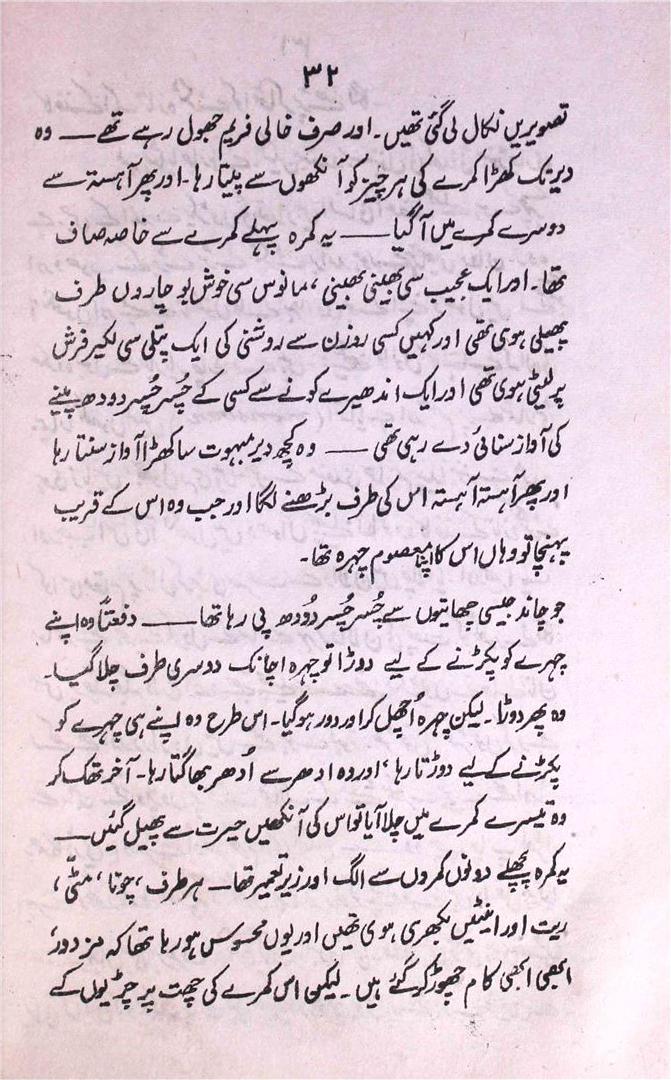 ۳۲
تصویریں نکال لی گئی تھیں۔ اور صرف خالی فریم جھول رہے تھے — وہ
دیر تک کھڑا کمرے کی ہر چیز کو آنکھوں سے پیتا رہا۔ اور پھر آہستہ سے
دوسرے کمرے میں آ گیا — یہ کمرہ پہلے کمرے سے خاصہ صاف
تھا۔ اور ایک عجیب سی بھینی بھینی، مانوس سی خوش بو چاروں طرف
پھیلی ہوی تھی اور کہیں کسی روزن سے روشنی کی ایک پتلی سی لکیر فرش
پر لیٹی ہوی تھی اور ایک اندھیرے کونے سے کسی کے چُسر چُسر دودھ پینے
کی آواز سنائی دے رہی تھی — وہ کچھ دیر مبہوت سا کھڑا آواز سنتا رہا
اور پھر آہستہ آہستہ اس کی طرف بڑھنے لگا اور جب وہ اس کے قریب
پہنچا تو وہاں اس کا اپنا معصوم چہرہ تھا۔
جو چاند جیسی چھاتیوں سے چُسر چُسر دُودھ پی رہا تھا — دفعتاً وہ اپنے
چہرے کو پکڑنے کے لیے دوڑا تو چہرہ اچانک دوسری طرف چلا گیا۔
وہ پھر دوڑا۔ لیکن چہرہ اُچھل کر اور دور ہو گیا۔ اس طرح وہ اپنے ہی چہرے کو
پکڑنے کے لیے دوڑتا رہا، اور وہ ادھر سے اُدھر بھاگتا رہا۔ آخر تھک کر
وہ تیسرے کمرے میں چلا آیا تو اس کی آنکھیں حیرت سے پھیل گئیں —
یہ کمرہ پچھلے دونوں کمروں سے الگ اور زیر تعمیر تھا — ہر طرف، چونا، مٹّی،
ریت اور اینٹیں بکھری ہوی تھیں اور یوں محسوس ہو رہا تھا کہ مزدور
ابھی ابھی کام چھوڑ کر گئے ہیں۔ لیکن اس کمرے کی چھت پر چڑیوں کے